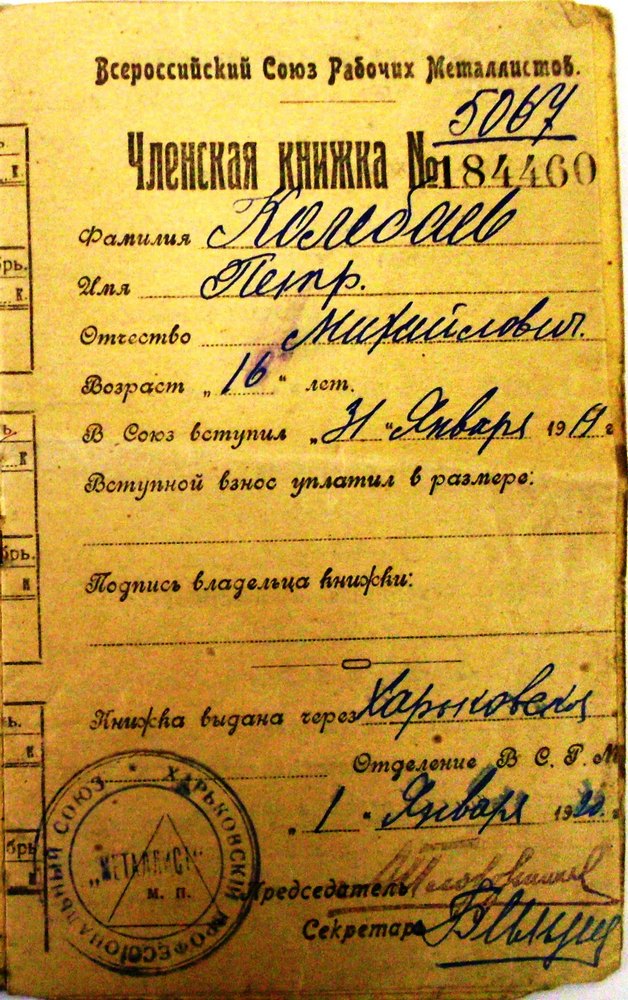 Всероссийский Союз Рабочих Металлистов.
5067
Членская книжка № 184460
Фамилия Колебаев
Имя Петр.
Отчество Михайлович.
Возраст „16“ лет.
В Союз вступил „31“ Января 1919 г
Вступной взнос уплатил в размере:
Подпись владельца книжки:
Книжка выдана через Харьковская
Отделение В С. Р. М
„1“ Января 1920 г
Председатель
Секретарь
ХАРЬКОВСКІЙ ПРОФЕССІОНАЛЬНЫЙ СОЮЗ
„МЕТАЛЛИСТ“
М. П.